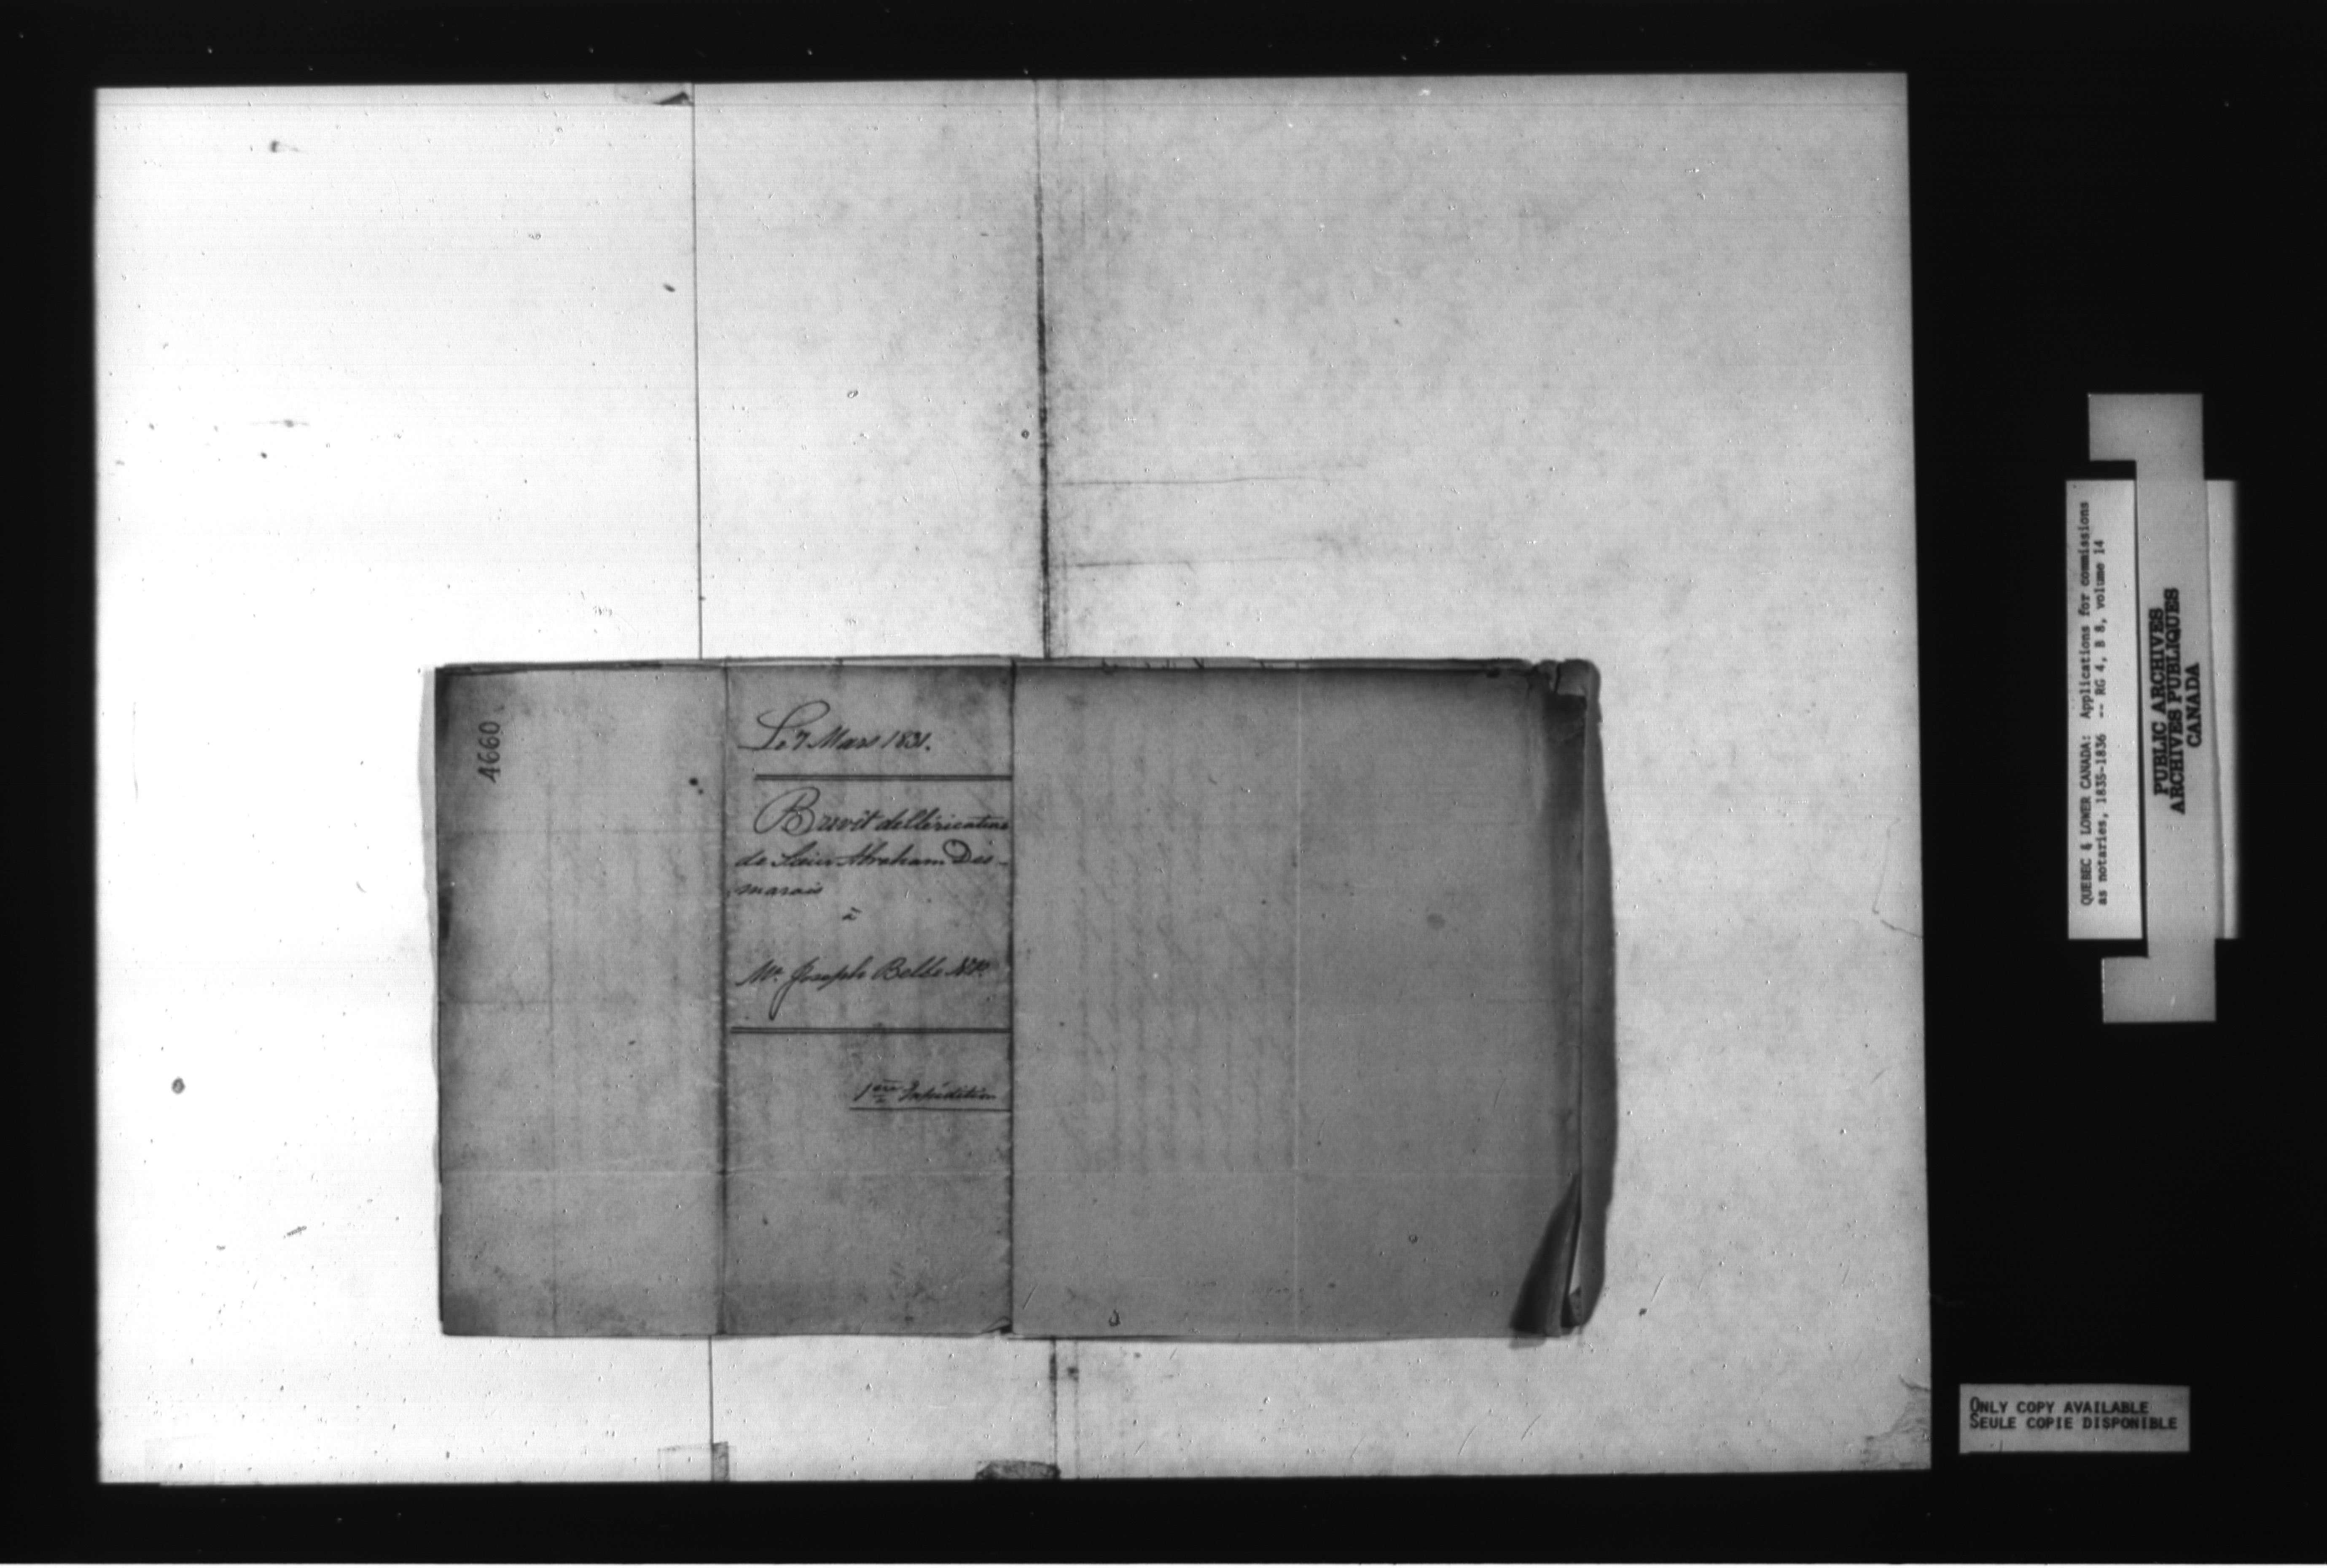 4660
Le 7 Mars 1831.
Brevêt de Cléricature
de Sieur Abraham Des-
marais
à
Mr. Joseph Belle N.P.
1ere Expédition
QUEBEC & LOWER CANADA: Applications for commissions
as notaries, 1835-1836 -- RG 4, B 8, volume 14
PUBLIC ARCHIVES
ARCHIVES PUBLIQUES
CANADA
ONLY COPY AVAILABLE
SEULE COPIE DISPONIBLE